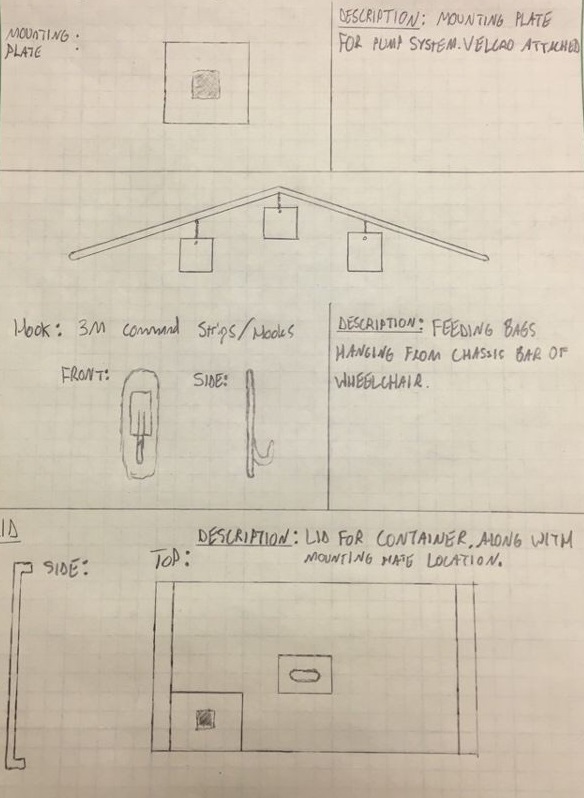 MOUNTING:
PLATE :
DESCRIPTION: MOUNTING PLATE
FOR PUMP SYSTEM. VELCRO ATTACHED
Hook: 3M command Strips/Hooks
FRONT:
SIDE:
DESCRIPTION: FEEDING BAGS
HANGING FROM CHASSIS BAR OF
WHEELCHAIR.
ID
DESCRIPTION: LID FOR CONTAINER, ALONG WITH
MOUNTING PLATE LOCATION.
SIDE:
TOP: